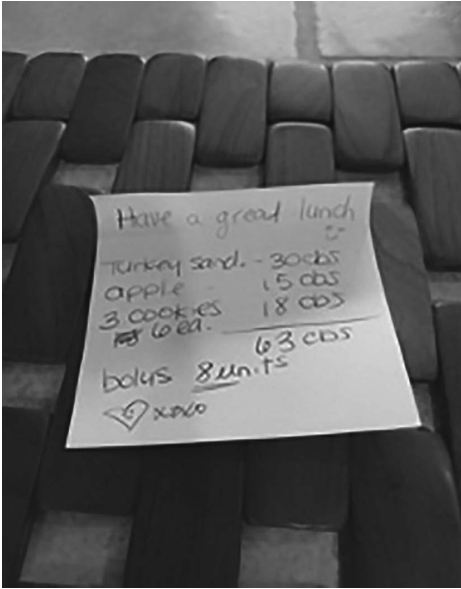 Have a great lunch
Turkey sand. - 30cbs
apple 15 cbs
3 cookies 18 cbs
6 ea.
63 cbs
bolus 8 units
xoxo